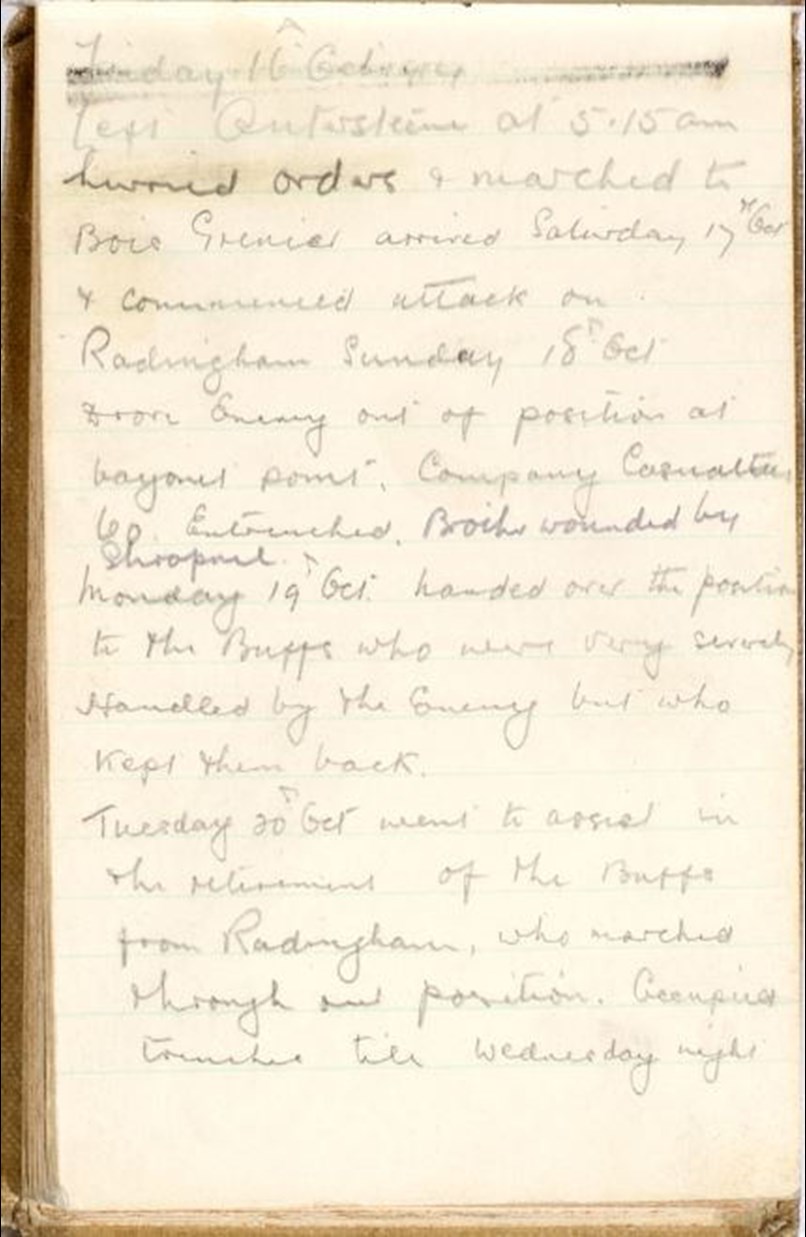 Friday 16th October
Left Outersteene at 5.15 am
hurried orders & marched to
Bois Grenier arrived Saturday 17th Oct
& commenced attack on
Radingham Sunday 18th Oct
Drove Enemy out of position at
bayonet point. Company Casualties
60. Entrenched. wounded by
Shrapnel.
Monday 19th Oct. handed over the position
to the Buffs who were very severely
Handled by the Enemy but who
Kept them back.
Tuesday 20th Oct went to assist in
the retirement of the Buffs
from Radingham, who marched
through our position. Occupied
trenches till Wednesday night